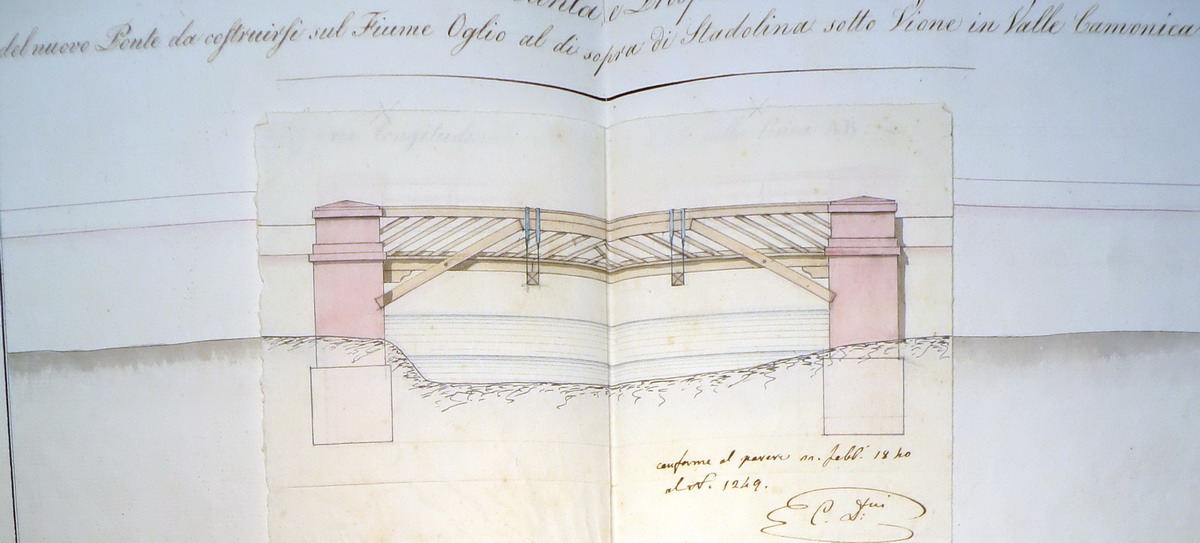 del nuovo Ponte da costruirsi sul Fiume Oglio al di sopra di Stadolina sotto Vione in Valle Camonica
conforme al parere 11. febb. 1840
al N. 1249.